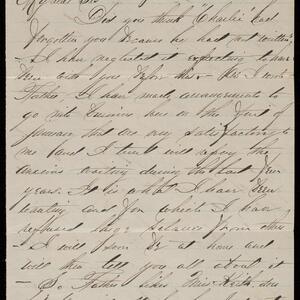 My dear Sir
Did you think "Charlie" had
forgotten you because he had not written,
I have neglected it expecting to have
been with you before this - As I wrote
Father I have made arrangements to
go into business here on the first of
January that are very satisfactory to
me and I trust will repay the
anxious waiting during the last few
years. It is what I have been
waiting and for which I have
refused large salaries from others
I will soon be at home and
will then tell you all about it
So Father likes Miss Keith, does